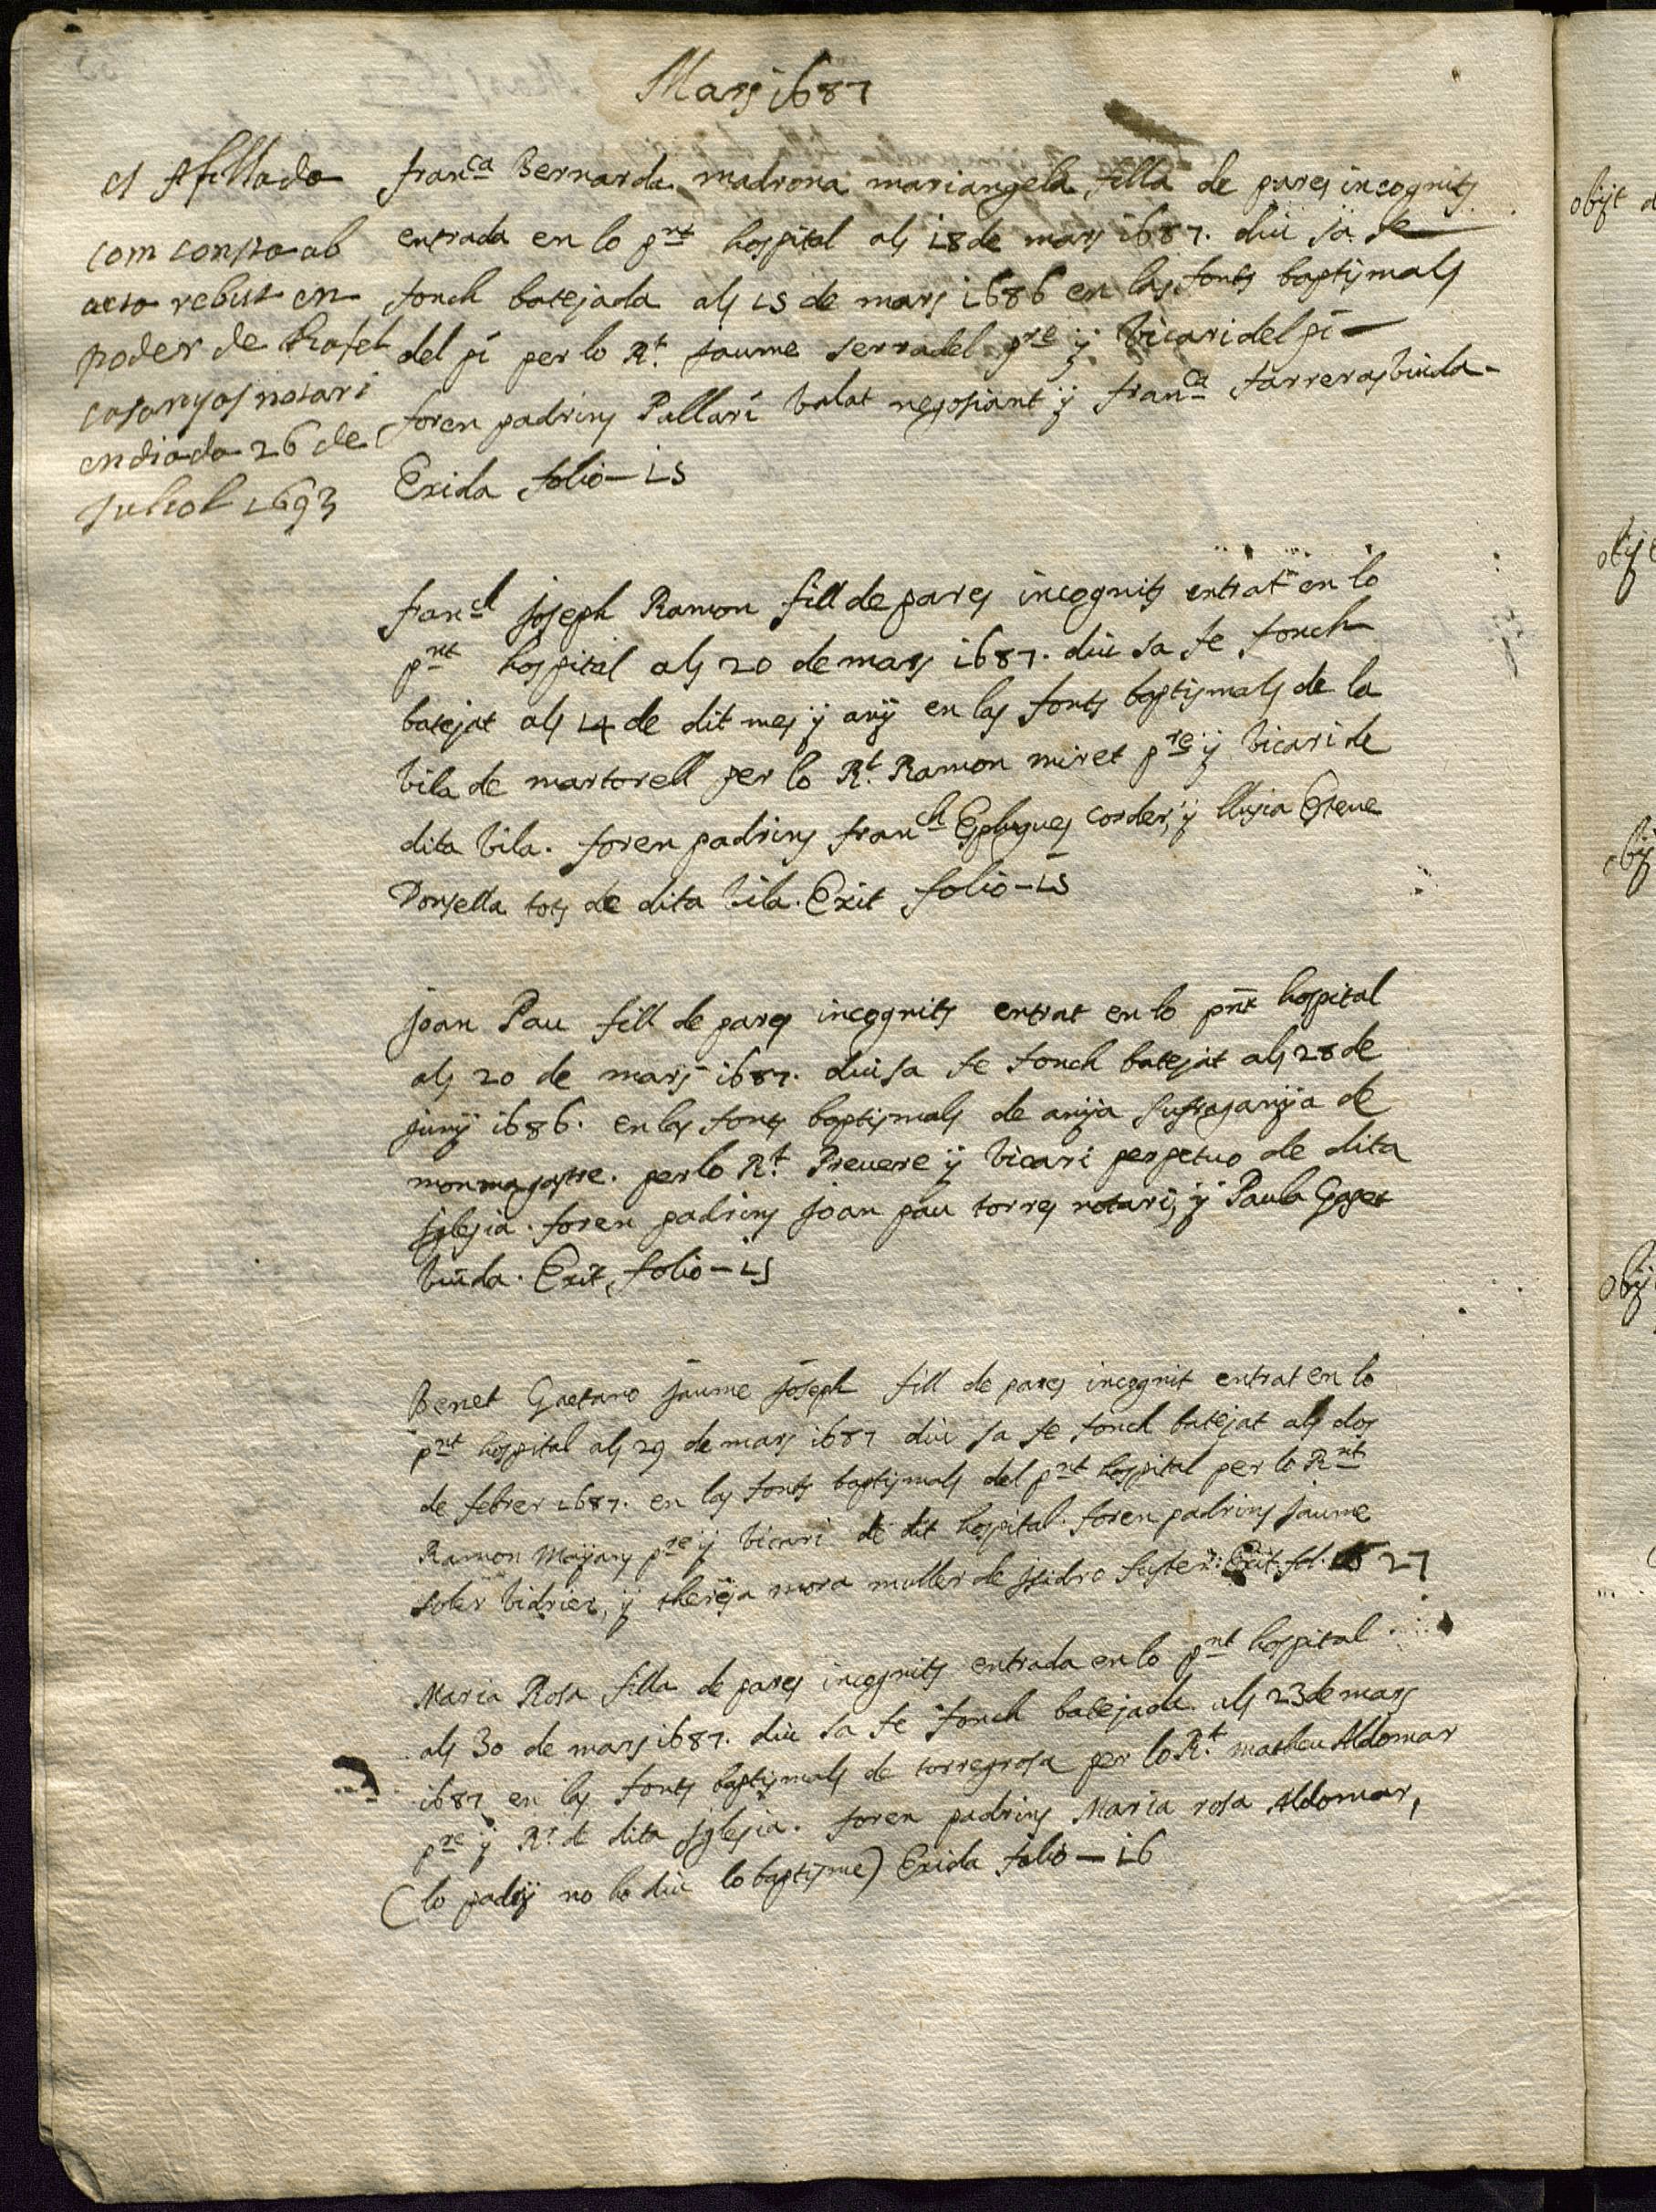 Mars 1687
es Afillada
com consta ab
acto rebut en
poder de Rafel
casanyas notari
en diada 26 de
Juliol 1693
franca Bernarda madrona mariangela filla de pares incognits
entrada en lo pnt hospital als 18 de mars 1687. diu sa fe
fonch batejada als 15 de mars 1686 en las fonts baptismals
del pi per lo Rt. jaume serradel pre ÿ vicari del pi
foren padrins Pallari valat negosiant ÿ franca farreras viuda
Exida folio - 15
franch joseph Ramon fill de pares incognits entrat en lo
pnt hospital als 20 de mars 1687. diu sa fe fonch
batejat als 14 de dit mes ÿ anÿ en las fonts baptismals de la
vila de martorell per lo Rt. Ramon miret pre ÿ vicari de
dita vila. foren padrins franch Esplugues corder, ÿ llusia Esteue
Donsella tots de dita vila. Exit folio - 15
joan Pau fill de pares incognits entrat en lo pnt hospital
als 20 de mars 1687. diu sa fe fonch batejat als 28 de
junÿ 1686. en las fonts baptismals de anÿa sufraganÿa de
monmagastre. per lo Rt. Preuere ÿ vicari perpetuo de dita
Iglesia. foren padrins joan pau torres notari, ÿ Paula
viuda. Exit, folio - 15
Benet Gaetano jaume joseph fill de pares incognit entrat en lo
pnt hospital als 29 de mars 1687 diu sa fe fonch batejat als dos
de febrer 1687. en las fonts baptismals del pnt hospital per lo Rnt
Ramon Maÿans pre ÿ vicari de dit hospital. foren padrins jaume
soler vidrier, ÿ theresa mora muller de isidro fuster. Exit fol. 27
Maria Rosa filla de pares incognits entrada en lo pnt hospital.
als 30 de mars 1687. diu sa fe fonch batejada als 23 de mars
1687 en las fonts baptismals de torregrosa per lo Rt. matheu Aldomar
pre ÿ Rr de dita Iglesia. foren padrins Maria rosa Aldomar,
(lo padrÿ no ho diu lo baptisme) Exida folio - 16